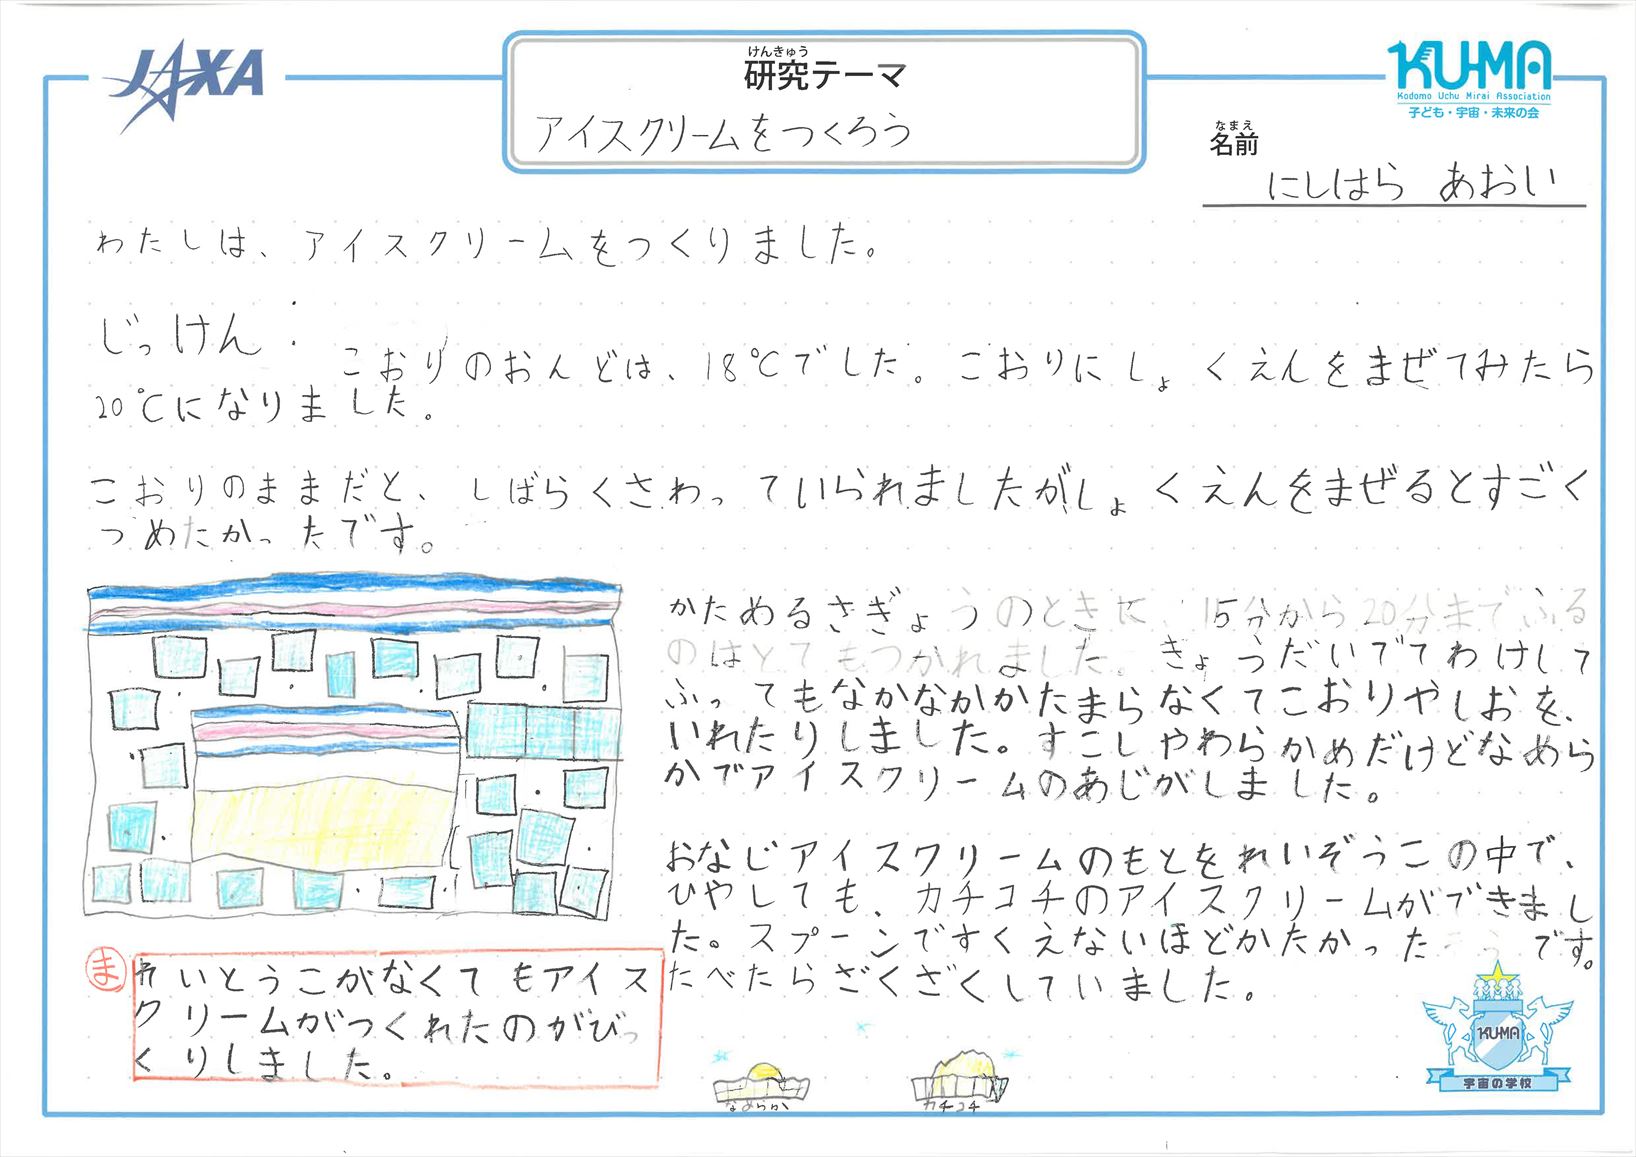 JAXA
けんきゅう
研究テーマ
アイスクリームをつくろう
KU-MA
Kodomo Uchu Mirai Association
子ども・宇宙・未来の会
なまえ
名前
にしはら あおい
わたしは、アイスクリームをつくりました。
じっけん
こおりのおんどは、18℃でした。こおりにしょくえんをまぜてみたら
20℃になりました。
こおりのままだと、しばらくさわっていられましたがしょくえんをまぜるとすごく
つめたかったです。
かためるさぎょうのときに、15分から20分までふる
のはとてもつかれました。きょうだいでてわけして
ふってもなかなかかたまらなくてこおりやしおを、
いれたりしました。すこしやわらかめだけどなめら
かでアイスクリームのあじがしました。
おなじアイスクリームのもとをれいぞうこの中で、
ひやしても、カチコチのアイスクリームができまし
た。スプーンですくえないほどかたかったです。
たべたらざくざくしていました。
ま
れいとうこがなくてもアイス
クリームがつくれたのがびっ
くりしました。
なめらか
カチコチ
KU-MA
宇宙の学校